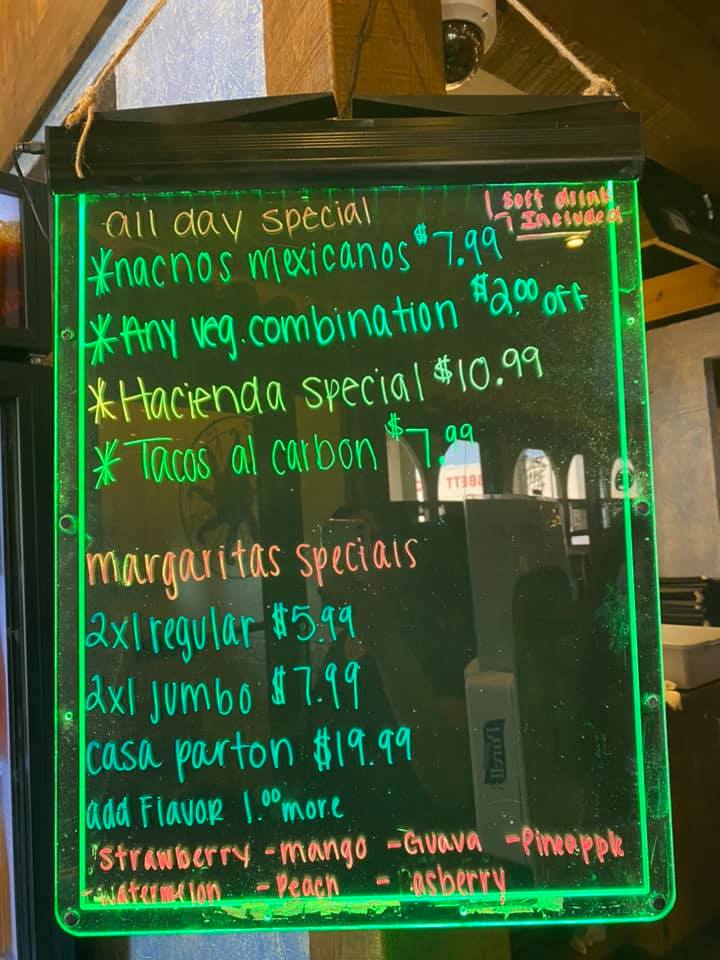 all day special
1 Soft drink
Included
*nachos mexicanos $7.99
*Any veg. combination $2.00 off
*Hacienda special $10.99
* Tacos al carbon $7.99
margaritas specials
2x1 regular $5.99
2x1 jumbo $7.99
casa parton $19.99
add Flavor 1.00 more
strawberry - mango - Guava - Pineapple
- watermelon - Peach - asberry